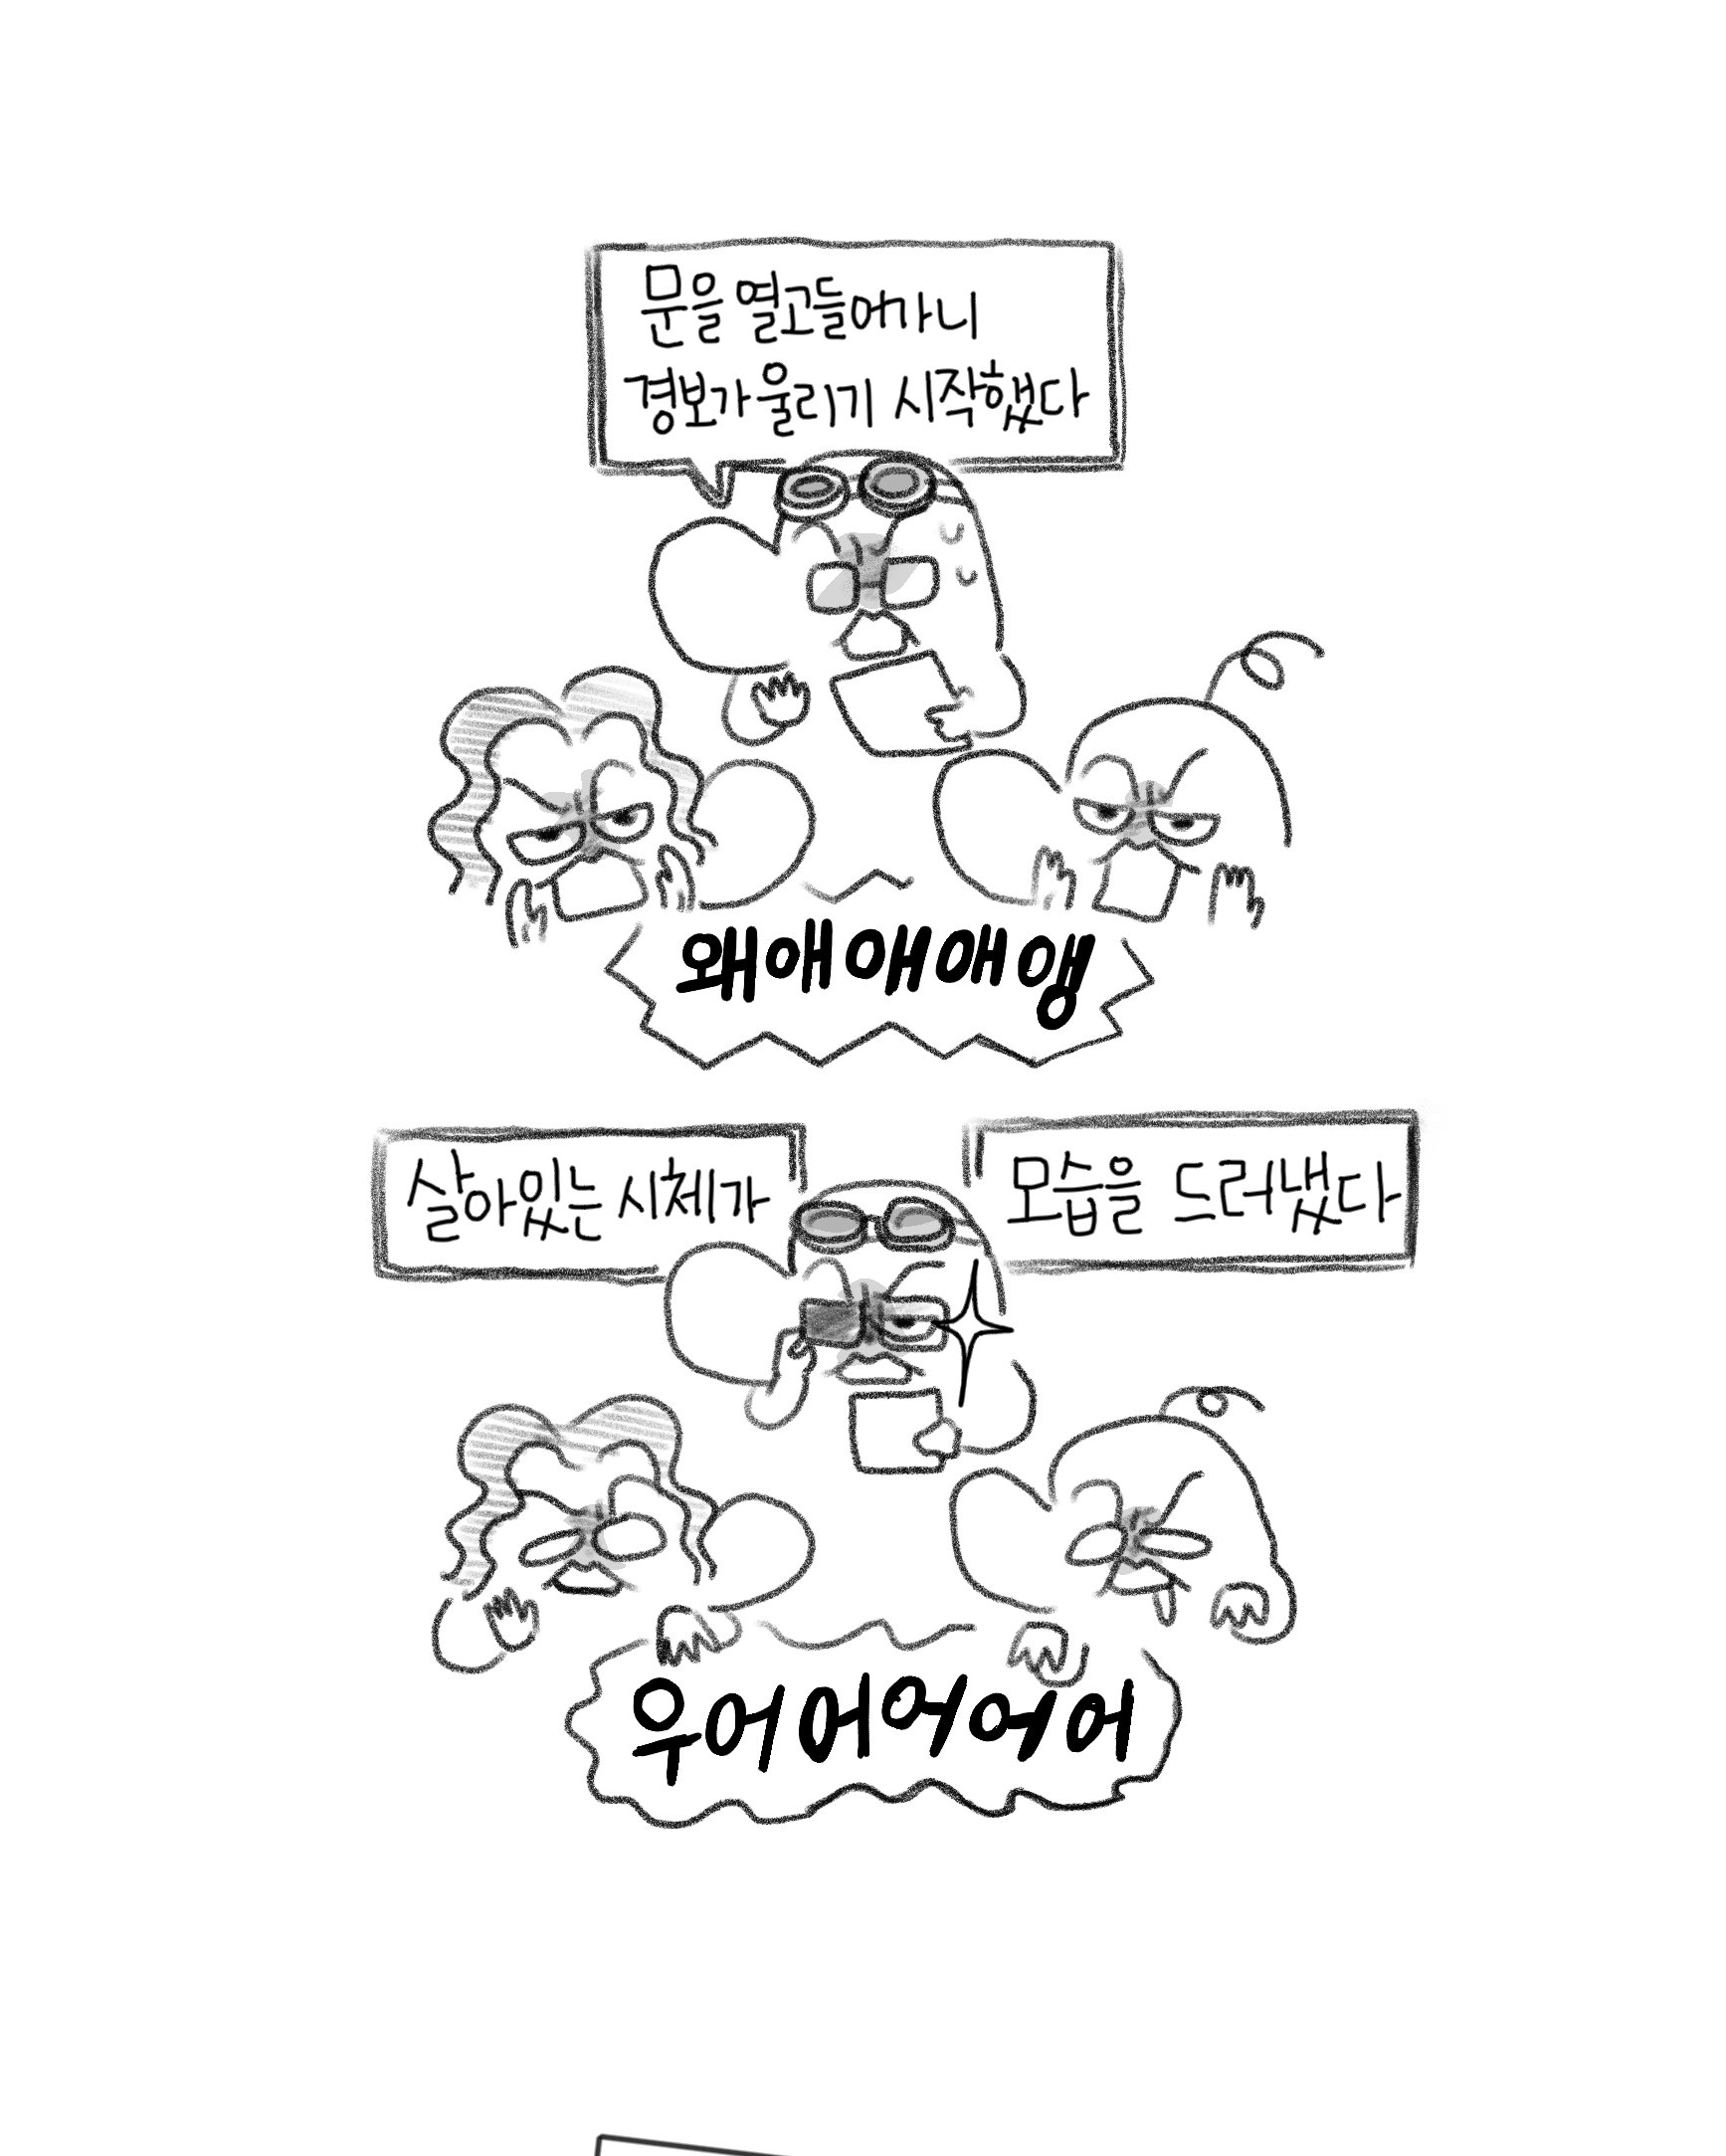 문을 열고들어가니
경보가 울리기 시작했다
왜애애애앵
살아있는 시체가
모습을 드러냈다
우어어어어어